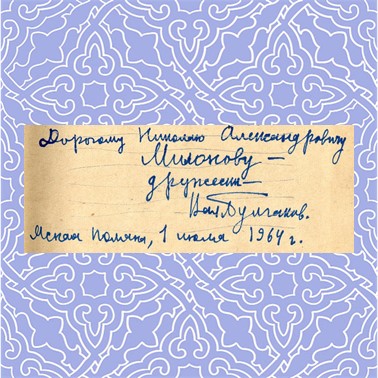 Дорогому Николаю Александровичу
Милонову —
дружески
Вал. Булгаков.
Ясная Поляна, 1 июля 1964 г.